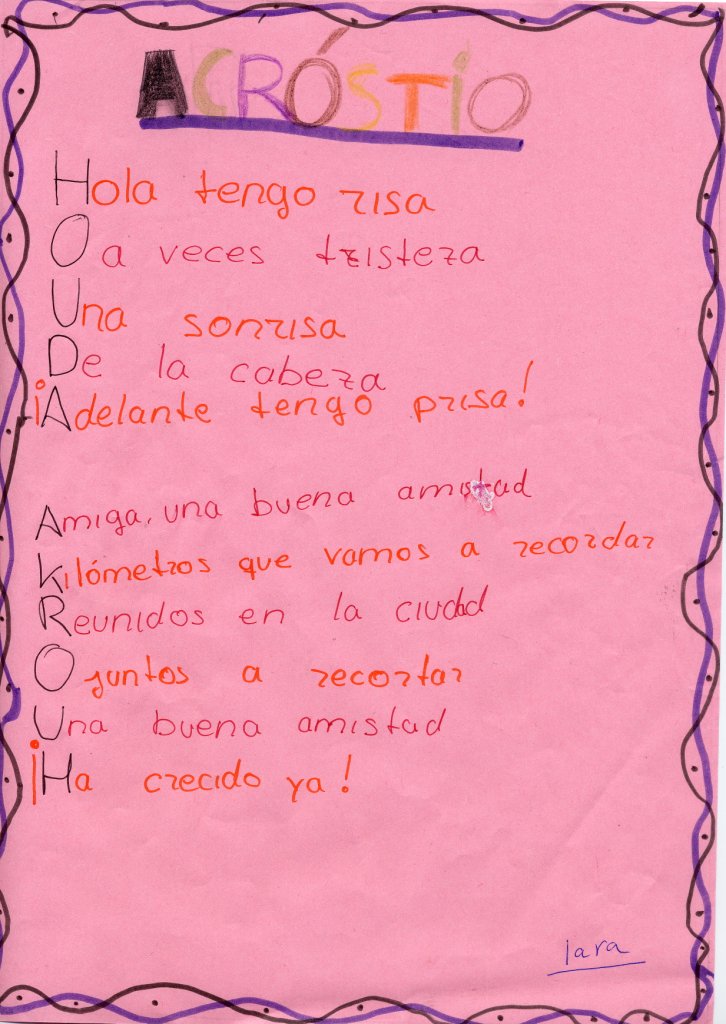 ACRÓSTIO
Hola tengo risa
O a veces tristeza
Una sonrisa
De la cabeza
¡Adelante tengo prisa!
Amiga, una buena amistad
Kilómetros que vamos a recordar
Reunidos en la ciudad
O juntos a recortar
Una buena amistad
¡Ha crecido ya!
Iara